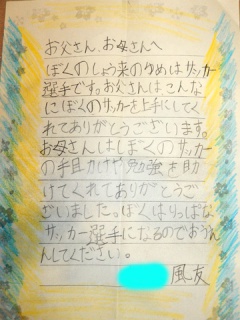 お父さん、お母さんへ
ぼくのしょう来のゆめはサッカー
選手です。お父さんはこんな
にぼくのサッカーを上手にしてく
れてありがとうございます。
お母さんはしぼくのサッカー
の手助けや勉強を助
けてくれてありがとうご
ざいましたっぼくはりっぱな
サッカー選手になるのでおうえ
んしてください。
風友